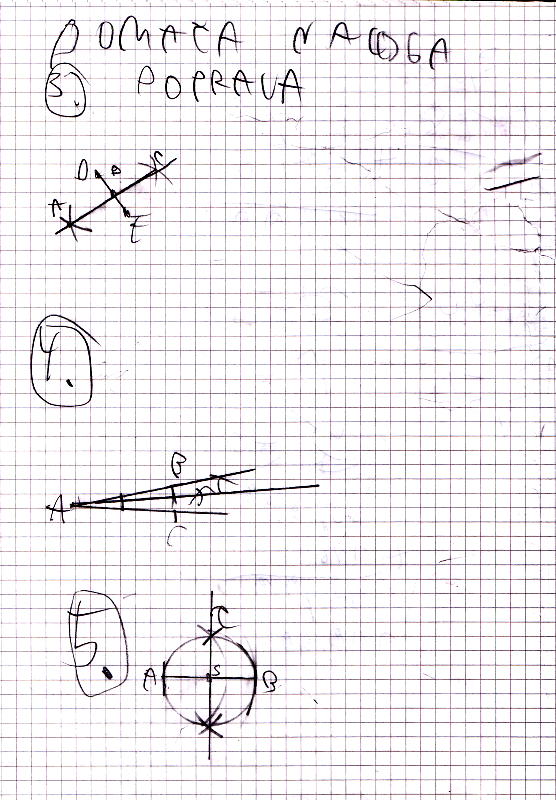 DOMAČA NALOGA
3. POPRAVA
D B C
A
E
4.
B
A
C
5.
C
A S B